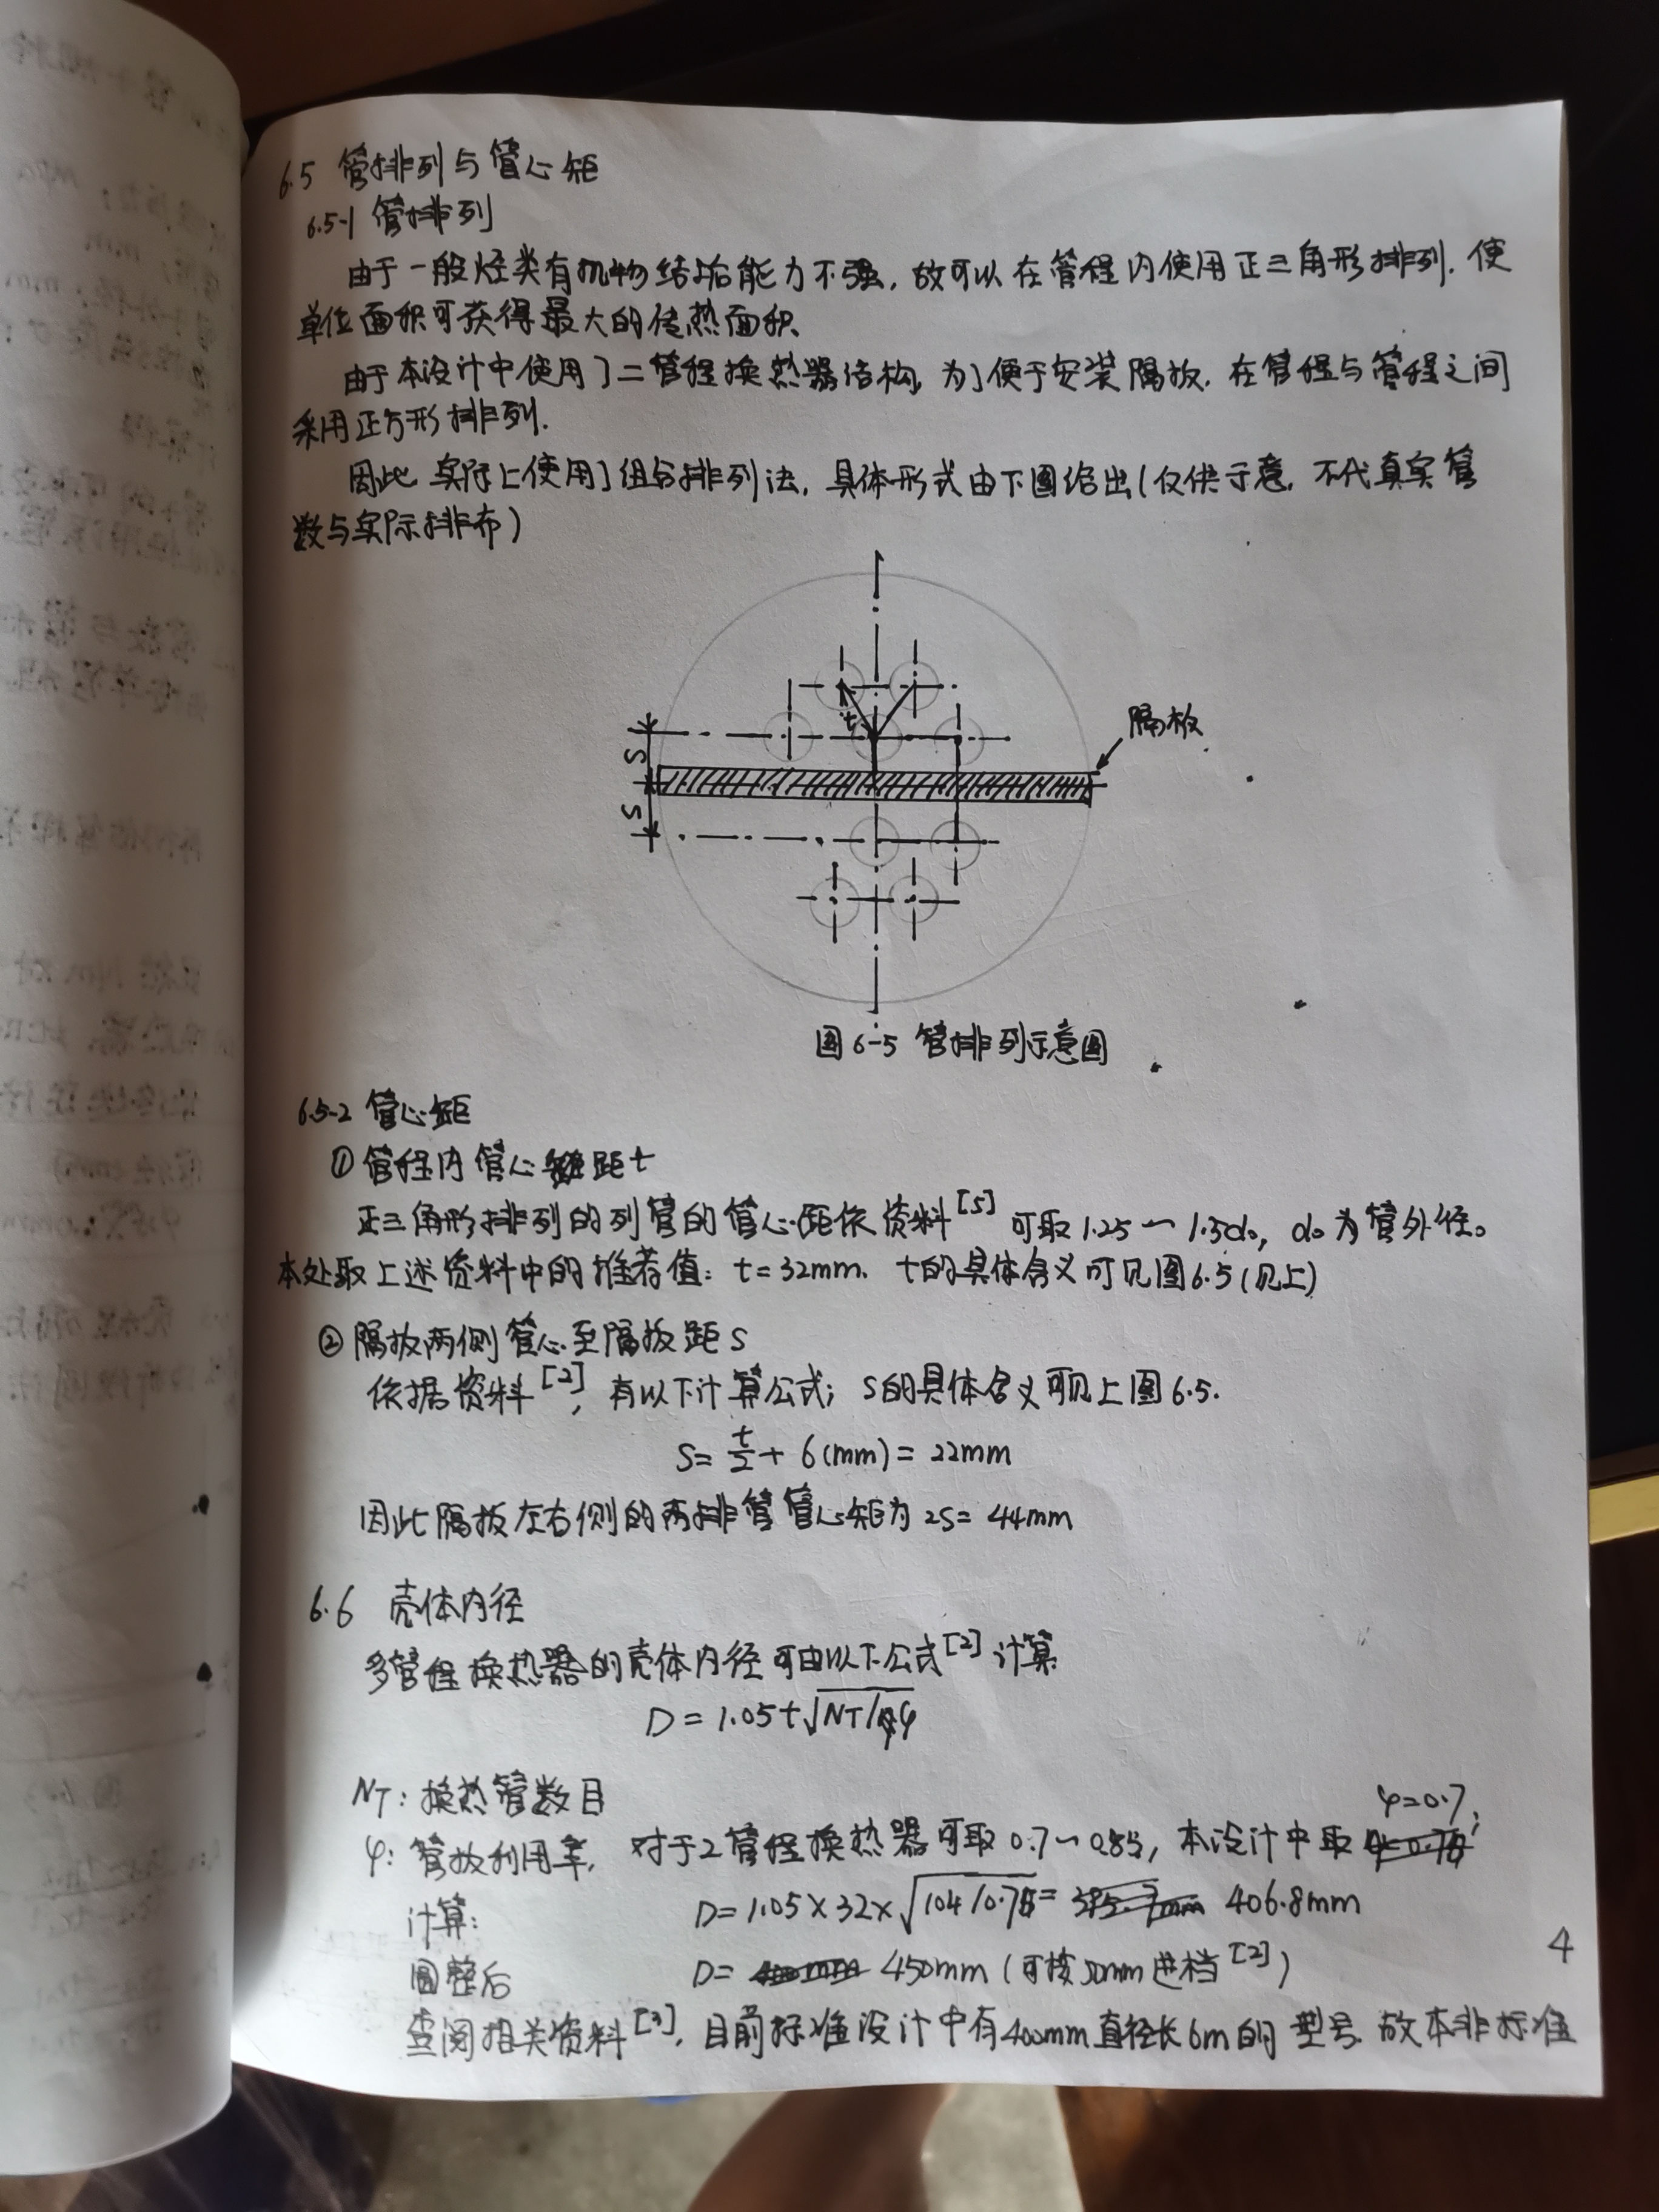 6.5 管排列与管心矩
6.5-1 管排列
由于一般烃类有机物结垢能力不强，故可以在管程内使用正三角形排列，使
单位面积可获得最大的传热面积、
由于本设计中使用了二管程换热器结构，为了便于安装隔板，在管程与管程之间
采用正方形排列.
因此，实际上使用了组合排列法，具体形式由下图给出（仅供示意，不代真实管
数与实际排布）
t
隔板
S
S
图6-5 管排列示意图
6.5-2 管心矩
① 管程内管心距t
正三角形排列的列管的管心距依资料[5]可取1.25～1.5do，do为管外径。
本处取上述资料中的推荐值：t=32mm、t的具体含义可见图6.5(见上)
② 隔板两侧管心至隔板距S
依据资料[2]，有以下计算公式；S的具体含义可见上图6.5.
S= t/2 + 6(mm) = 22mm
因此隔板左右侧的两排管管心矩为2S= 44mm
6.6 壳体内径
多管程换热器的壳体内径可由以下公式[2]计算
D = 1.05t√NT/φ
NT：换热管数目
φ=0.7;
φ：管板利用率，对于2管程换热器可取0.7～0.85，本设计中取
计算：D=1.05×32×√104/0.7= 406.8mm
圆整后 D= 450mm（可按50mm进档[2]）
4
查阅相关资料[3]，目前标准设计中有400mm直径长6m的型号.故本非标准